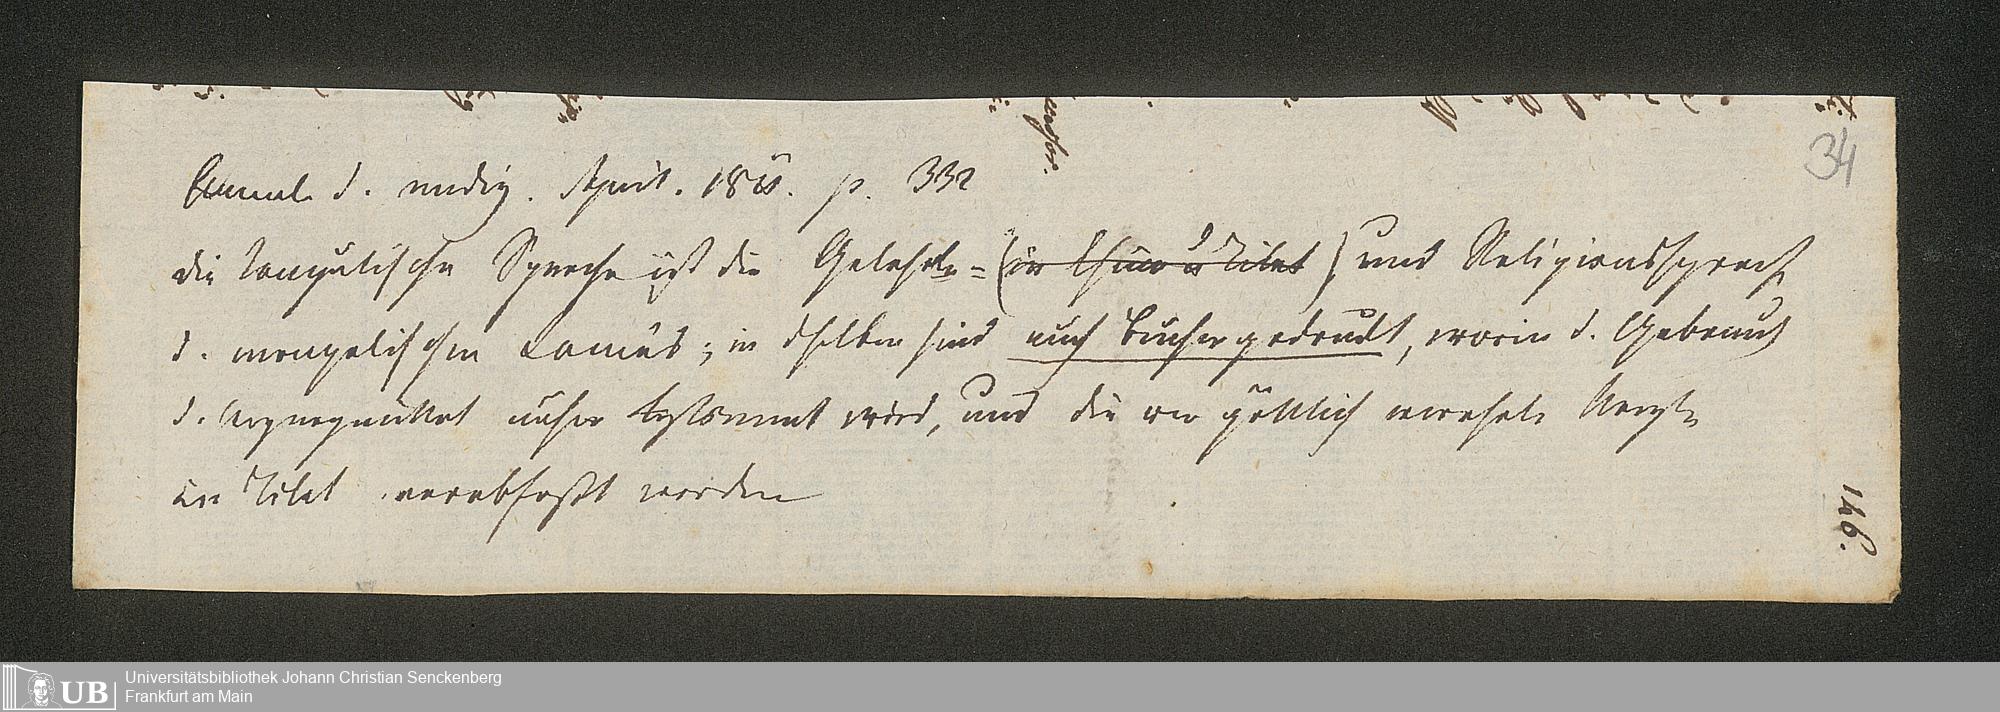 34
Annal. d. mediz. April. 1811. p. 332
die tangutische Sprache ist die Gelehrte= (in China u Tibet) und Religionssprach
d. mongolischen Lama's; in dselben sind auch Bücher gedruckt, worin d. Gebrauch
d. Arzneymittel bestimmt wird, und die von göttlich verehrte Aerzte
in Tibet verabfaßt worden
146.
Universitätsbibliothek Johann Christian Senckenberg
UB Frankfurt am Main